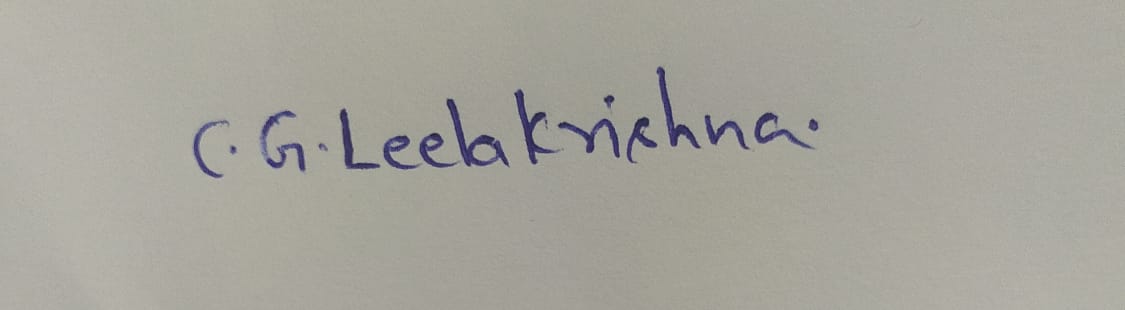 C. G. Leela Krishna.